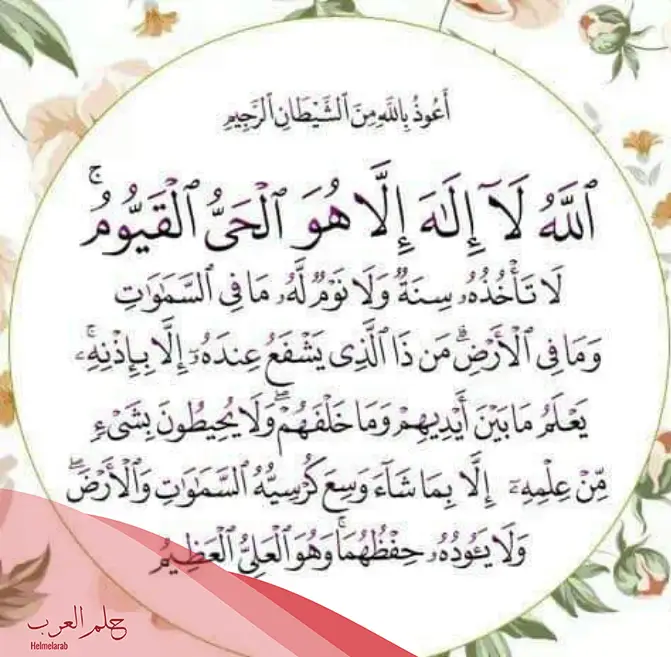 أَعُوذُ بِاللَّهِ مِنَ ٱلشَّيْطَانِ ٱلرَّجِيمِ
ٱللَّهُ لَآ إِلَٰهَ إِلَّا هُوَ ٱلْحَىُّ ٱلْقَيُّومُ ۚ
لَا تَأْخُذُهُۥ سِنَةٌ وَلَا نَوْمٌ لَّهُۥ مَا فِى ٱلسَّمَٰوَٰتِ
وَمَا فِى ٱلْأَرْضِ ۗ مَن ذَا ٱلَّذِى يَشْفَعُ عِندَهُۥٓ إِلَّا بِإِذْنِهِۦ ۚ
يَعْلَمُ مَا بَيْنَ أَيْدِيهِمْ وَمَا خَلْفَهُمْ ۖ وَلَا يُحِيطُونَ بِشَىْءٍ
مِّنْ عِلْمِهِۦٓ إِلَّا بِمَا شَآءَ وَسِعَ كُرْسِيُّهُ ٱلسَّمَٰوَٰتِ وَٱلْأَرْضَ ۖ
وَلَا يَـُٔودُهُۥ حِفْظُهُمَا ۚ وَهُوَ ٱلْعَلِىُّ ٱلْعَظِيمُ
حلم العرب
Helmelarab